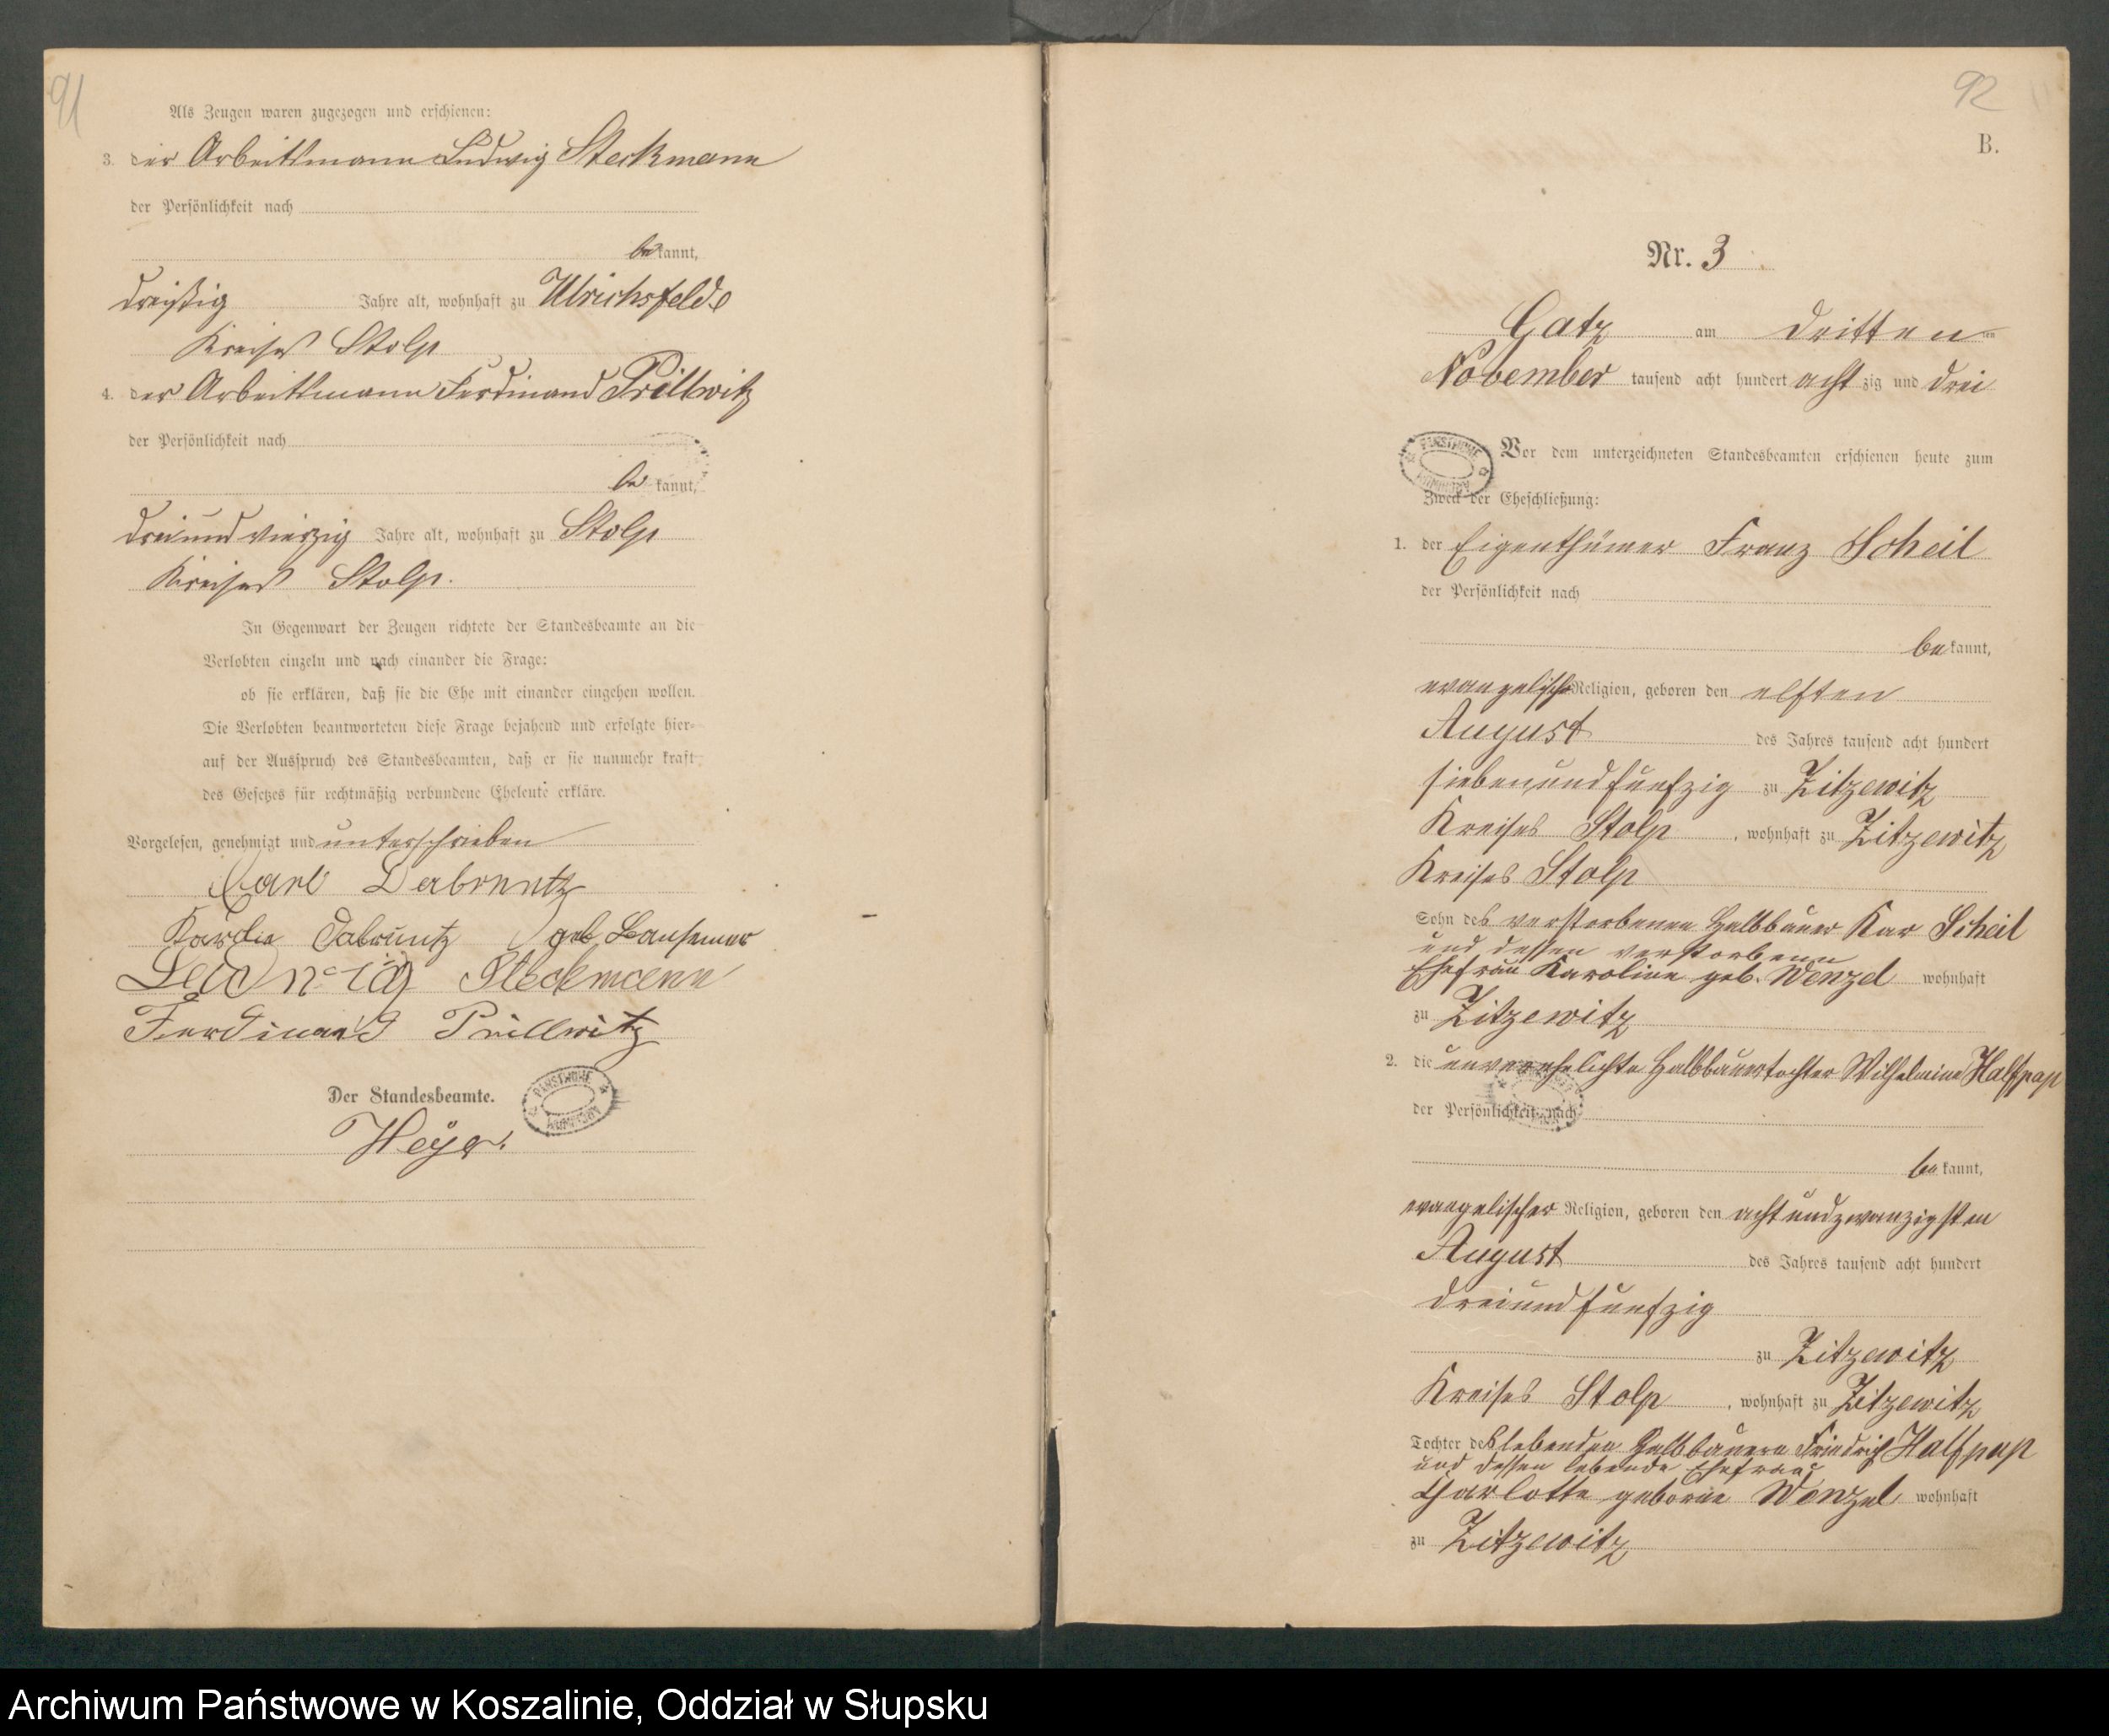 91
Als Zeugen waren zugezogen und erschienen:
3. der Arbeitsmann Ludwig Steckmann
der Persönlichkeit nach
bekannt,
dreißig Jahre alt, wohnhaft zu Ulrichsfelde
Kreises Stolp
4. der Arbeitsmann Ferdinand Prillwitz
der Persönlichkeit nach
bekannt,
dreiundvierzig Jahre alt, wohnhaft zu Stolp
Kreises Stolp.
In Gegenwart der Zeugen richtete der Standesbeamte an die
Verlobten einzeln und nach einander die Frage:
ob sie erklären, daß sie die Ehe mit einander eingehen wollen.
Die Verlobten beantworteten diese Frage bejahend und erfolgte hier-
auf der Ausspruch des Standesbeamten, daß er sie nunmehr kraft
des Gesetzes für rechtmäßig verbundene Eheleute erkläre.
Vorgelesen, genehmigt und unterschrieben
Carl
geb
Steckmann
Ferdinand Prillwitz
Der Standesbeamte.
Heyer.
92
B.
Nr. 3
Gatz am dritten
November tausend acht hundert achtzig und drei
Vor dem unterzeichneten Standesbeamten erschienen heute zum
Zweck der Eheschließung:
1. der Eigenthümer Franz Scheil
der Persönlichkeit nach
bekannt,
evangelischer Religion, geboren den elften
August des Jahres tausend acht hundert
siebenundfünfzig zu Zitzewitz
Kreises Stolp, wohnhaft zu Zitzewitz
Kreises Stolp
Sohn des verstorbenen Halbbauer Kar Scheil
und dessen verstorbenen
Ehefrau Karoline geb. Wenzel wohnhaft
zu Zitzewitz
2. die unverehelichte Halbbauertochter Wilhelmine Halfpap
der Persönlichkeit nach
bekannt,
evangelischer Religion, geboren den achtundzwanzigsten
August des Jahres tausend acht hundert
dreiundfünfzig
zu Zitzewitz
Kreises Stolp, wohnhaft zu Zitzewitz
Tochter des lebenden Halbbauern Friedrich Halfpap
und dessen lebende Ehefrau
Charlotte geborne Wenzel wohnhaft
zu Zitzewitz
Archiwum Państwowe w Koszalinie, Oddział w Słupsku